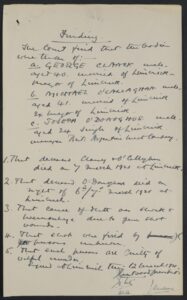 Finding
The Court find that the bodies
were those of:-
a. GEORGE CLANCY male
aged 40. married of Limerick -
Mayor of Limerick
b. MICHAEL O'CALLAGHAN male
aged 41. married of Limerick
Ex Mayor of Limerick
c. JOSEPH O'DONOGHUE male
aged 24 single of Limerick
manager
1. That deceased Clancy & O'Callaghan
died on 7 March 1921 at Limerick.
2. That deceased O'Donoghue died on
night of 6th/7th March 1921 at
Limerick.
3. That cause of death was shock &
haemorrhage due to gun shot
wounds.
4. That shot was fired by
persons unknown
5. That such persons are guilty of
wilful murder.
Signed at Limerick this 12 March 1921